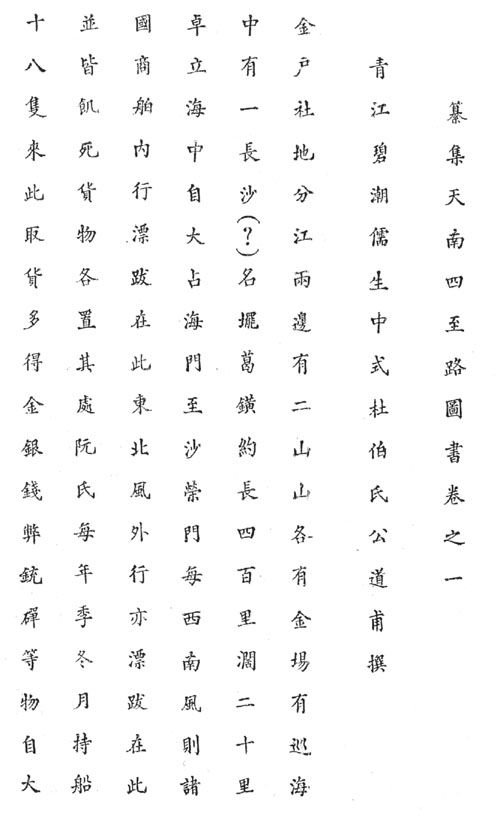 纂集天南四至路圖書卷之一
青江碧潮儒生中式杜伯氏公道甫撰
金戶社地分江兩邊有二山山各有金場有巡海
中有一長沙(?)名𡓁葛鐄約長四百里濶二十里
卓立海中自大占海門至沙榮門每西南風則諸
國商舶內行漂跋在此東北風外行亦漂跋在此
並皆飢死貨物各置其處阮氏每年季冬月持船
十八隻來此取貨多得金銀錢弊銃磾等物自大